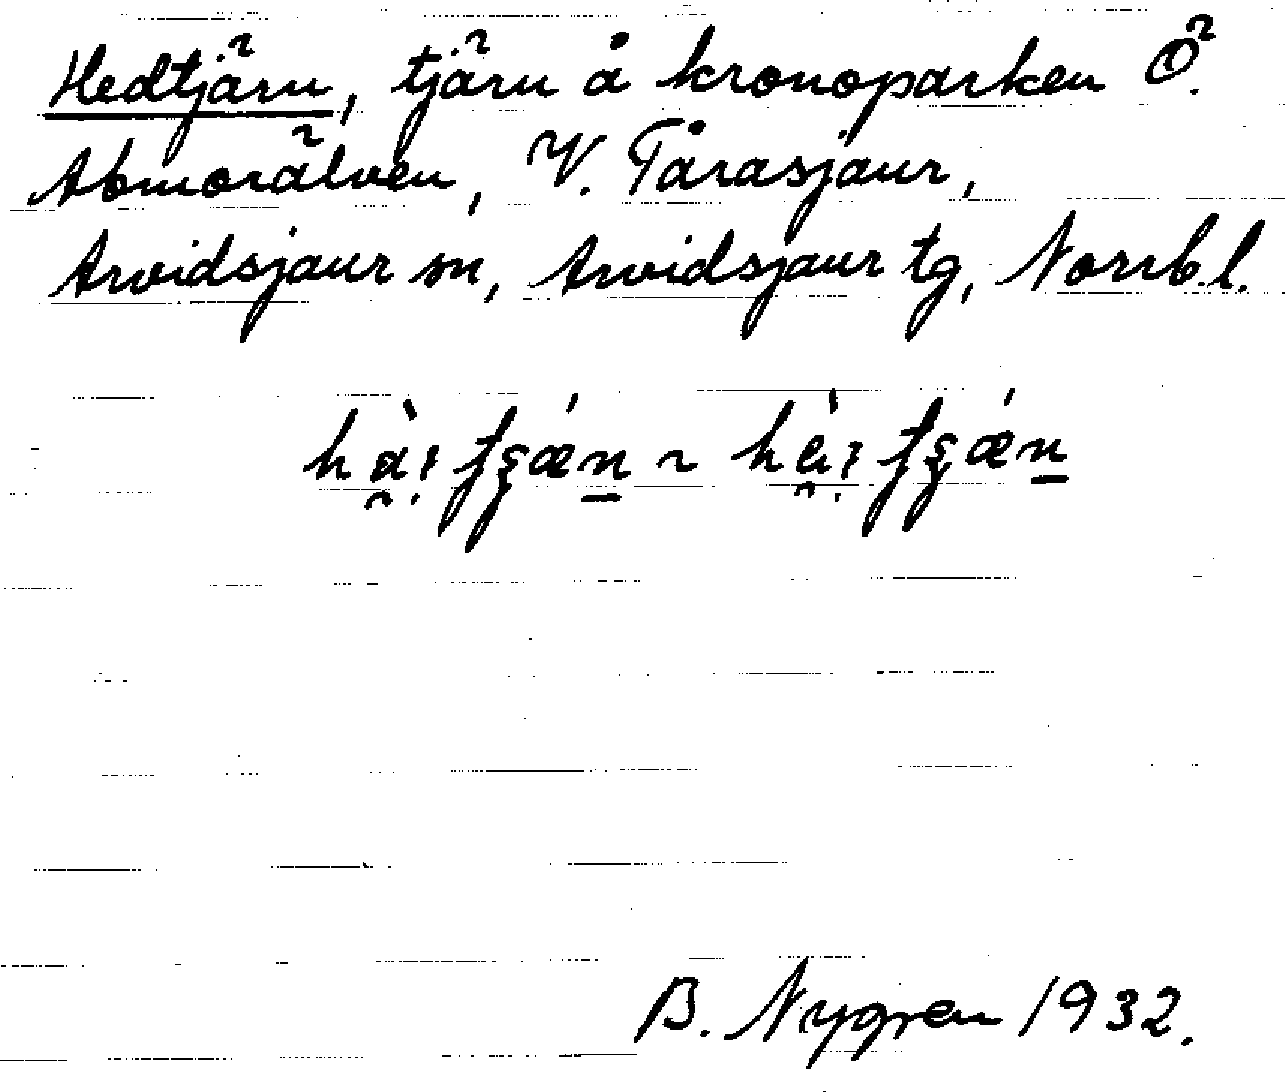 Hedtjärn, tjärn å kronoparken Ö.
Abmorälven, V. Tårasjaur,
Arvidsjaur sn, Arvidsjaur tg, Norrb.l.
B. Nygren 1932.